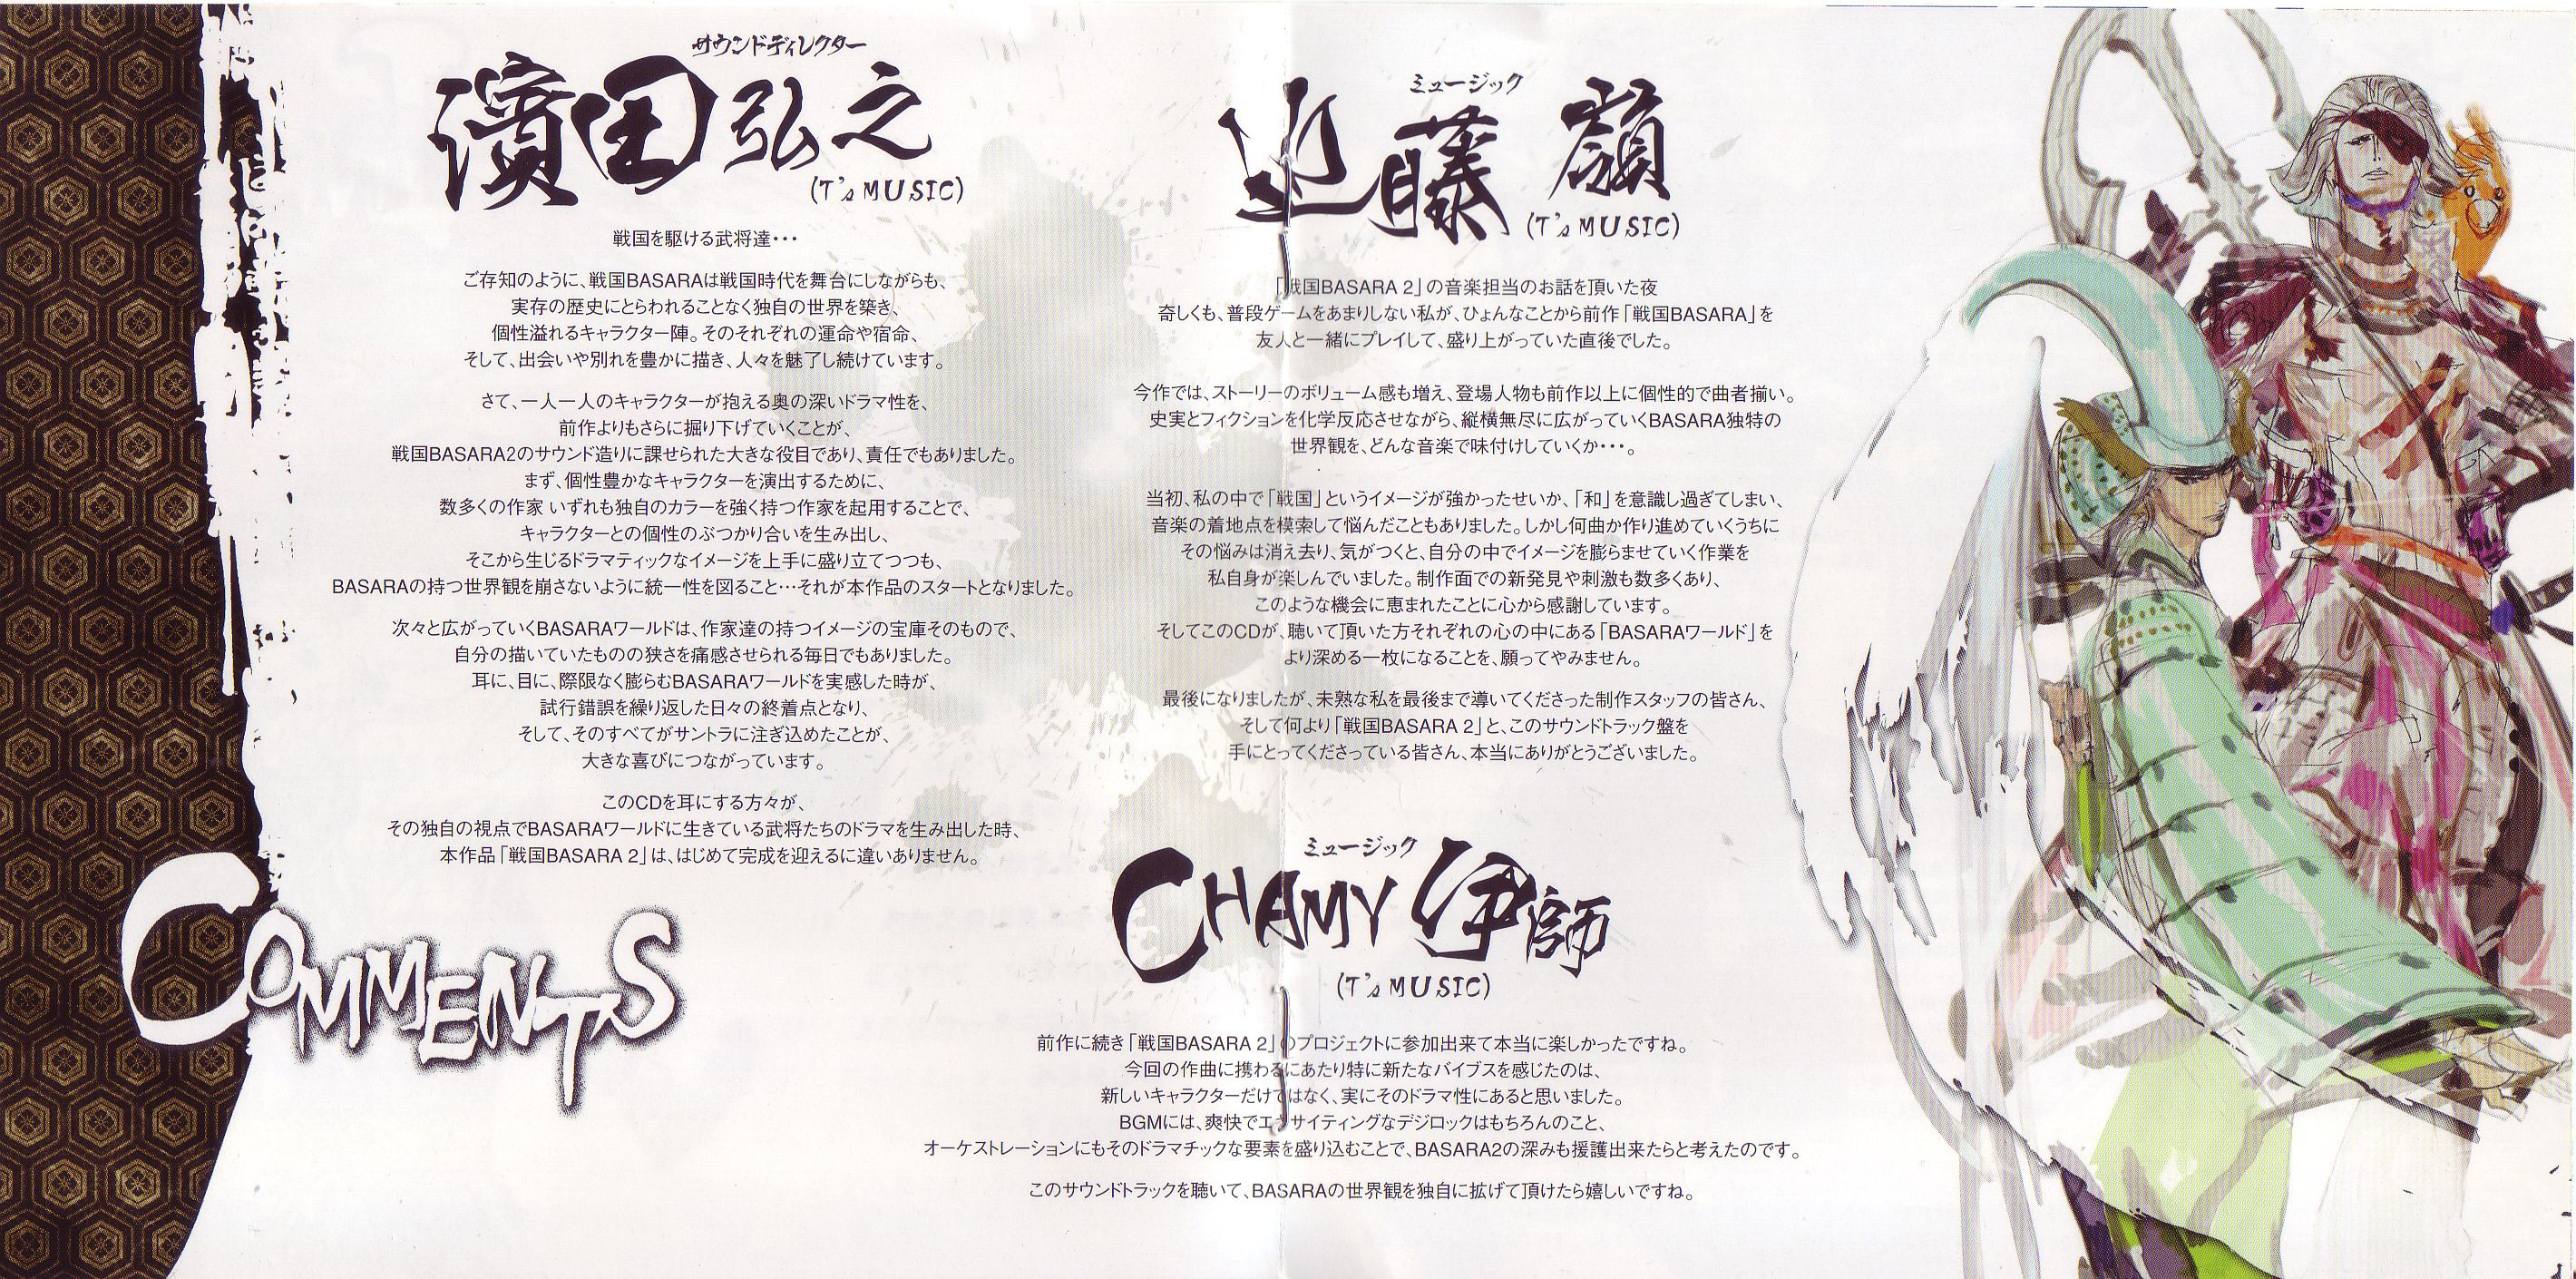 サウンドディレクター
濱田弘之
(T's MUSIC)
戦国を駆ける武将達・・・
ご存知のように、戦国BASARAは戦国時代を舞台にしながらも、
実存の歴史にとらわれることなく独自の世界を築き、
個性溢れるキャラクター陣。そのそれぞれの運命や宿命、
そして、出会いや別れを豊かに描き、人々を魅了し続けています。
さて、一人一人のキャラクターが抱える奥の深いドラマ性を、
前作よりもさらに掘り下げていくことが、
戦国BASARA2のサウンド造りに課せられた大きな役目であり、責任でもありました。
まず、個性豊かなキャラクターを演出するために、
数多くの作家 いずれも独自のカラーを強く持つ作家を起用することで、
キャラクターとの個性のぶつかり合いを生み出し、
そこから生じるドラマティックなイメージを上手に盛り立てつつも、
BASARAの持つ世界観を崩さないように統一性を図ること・・・それが本作品のスタートとなりました。
次々と広がっていくBASARAワールドは、作家達の持つイメージの宝庫そのもので、
自分の描いていたものの狭さを痛感させられる毎日でもありました。
耳に、目に、際限なく膨らむBASARAワールドを実感した時が、
試行錯誤を繰り返した日々の終着点となり、
そして、そのすべてがサントラに注ぎ込めたことが、
大きな喜びにつながっています。
このCDを耳にする方々が、
その独自の視点でBASARAワールドに生きている武将たちのドラマを生み出した時、
本作品「戦国BASARA 2」は、はじめて完成を迎えるに違いありません。
COMMENTS
ミュージック
近藤 嶺
(T's MUSIC)
「戦国BASARA 2」の音楽担当のお話を頂いた夜
奇しくも、普段ゲームをあまりしない私が、ひょんなことから前作「戦国BASARA」を
友人と一緒にプレイして、盛り上がっていた直後でした。
今作では、ストーリーのボリューム感も増え、登場人物も前作以上に個性的で曲者揃い。
史実とフィクションを化学反応させながら、縦横無尽に広がっていくBASARA独特の
世界観を、どんな音楽で味付けしていくか・・・。
当初、私の中で「戦国」というイメージが強かったせいか、「和」を意識し過ぎてしまい、
音楽の着地点を模索して悩んだこともありました。しかし何曲か作り進めていくうちに
その悩みは消え去り、気がつくと、自分の中でイメージを膨らませていく作業を
私自身が楽しんでいました。制作面での新発見や刺激も数多くあり、
このような機会に恵まれたことに心から感謝しています。
そしてこのCDが、聴いて頂いた方それぞれの心の中にある「BASARAワールド」を
より深める一枚になることを、願ってやみません。
最後になりましたが、未熟な私を最後まで導いてくださった制作スタッフの皆さん、
そして何より「戦国BASARA 2」と、このサウンドトラック盤を
手にとってくださっている皆さん、本当にありがとうございました。
ミュージック
CHAMY 伊師
(T's MUSIC)
前作に続き「戦国BASARA 2」のプロジェクトに参加出来て本当に楽しかったですね。
今回の作曲に携わるにあたり特に新たなバイブスを感じたのは、
新しいキャラクターだけではなく、実にそのドラマ性にあると思いました。
BGMには、爽快でエキサイティングなデジロックはもちろんのこと、
オーケストレーションにもそのドラマチックな要素を盛り込むことで、BASARA2の深みも援護出来たらと考えたのです。
このサウンドトラックを聴いて、BASARAの世界観を独自に拡げて頂けたら嬉しいですね。